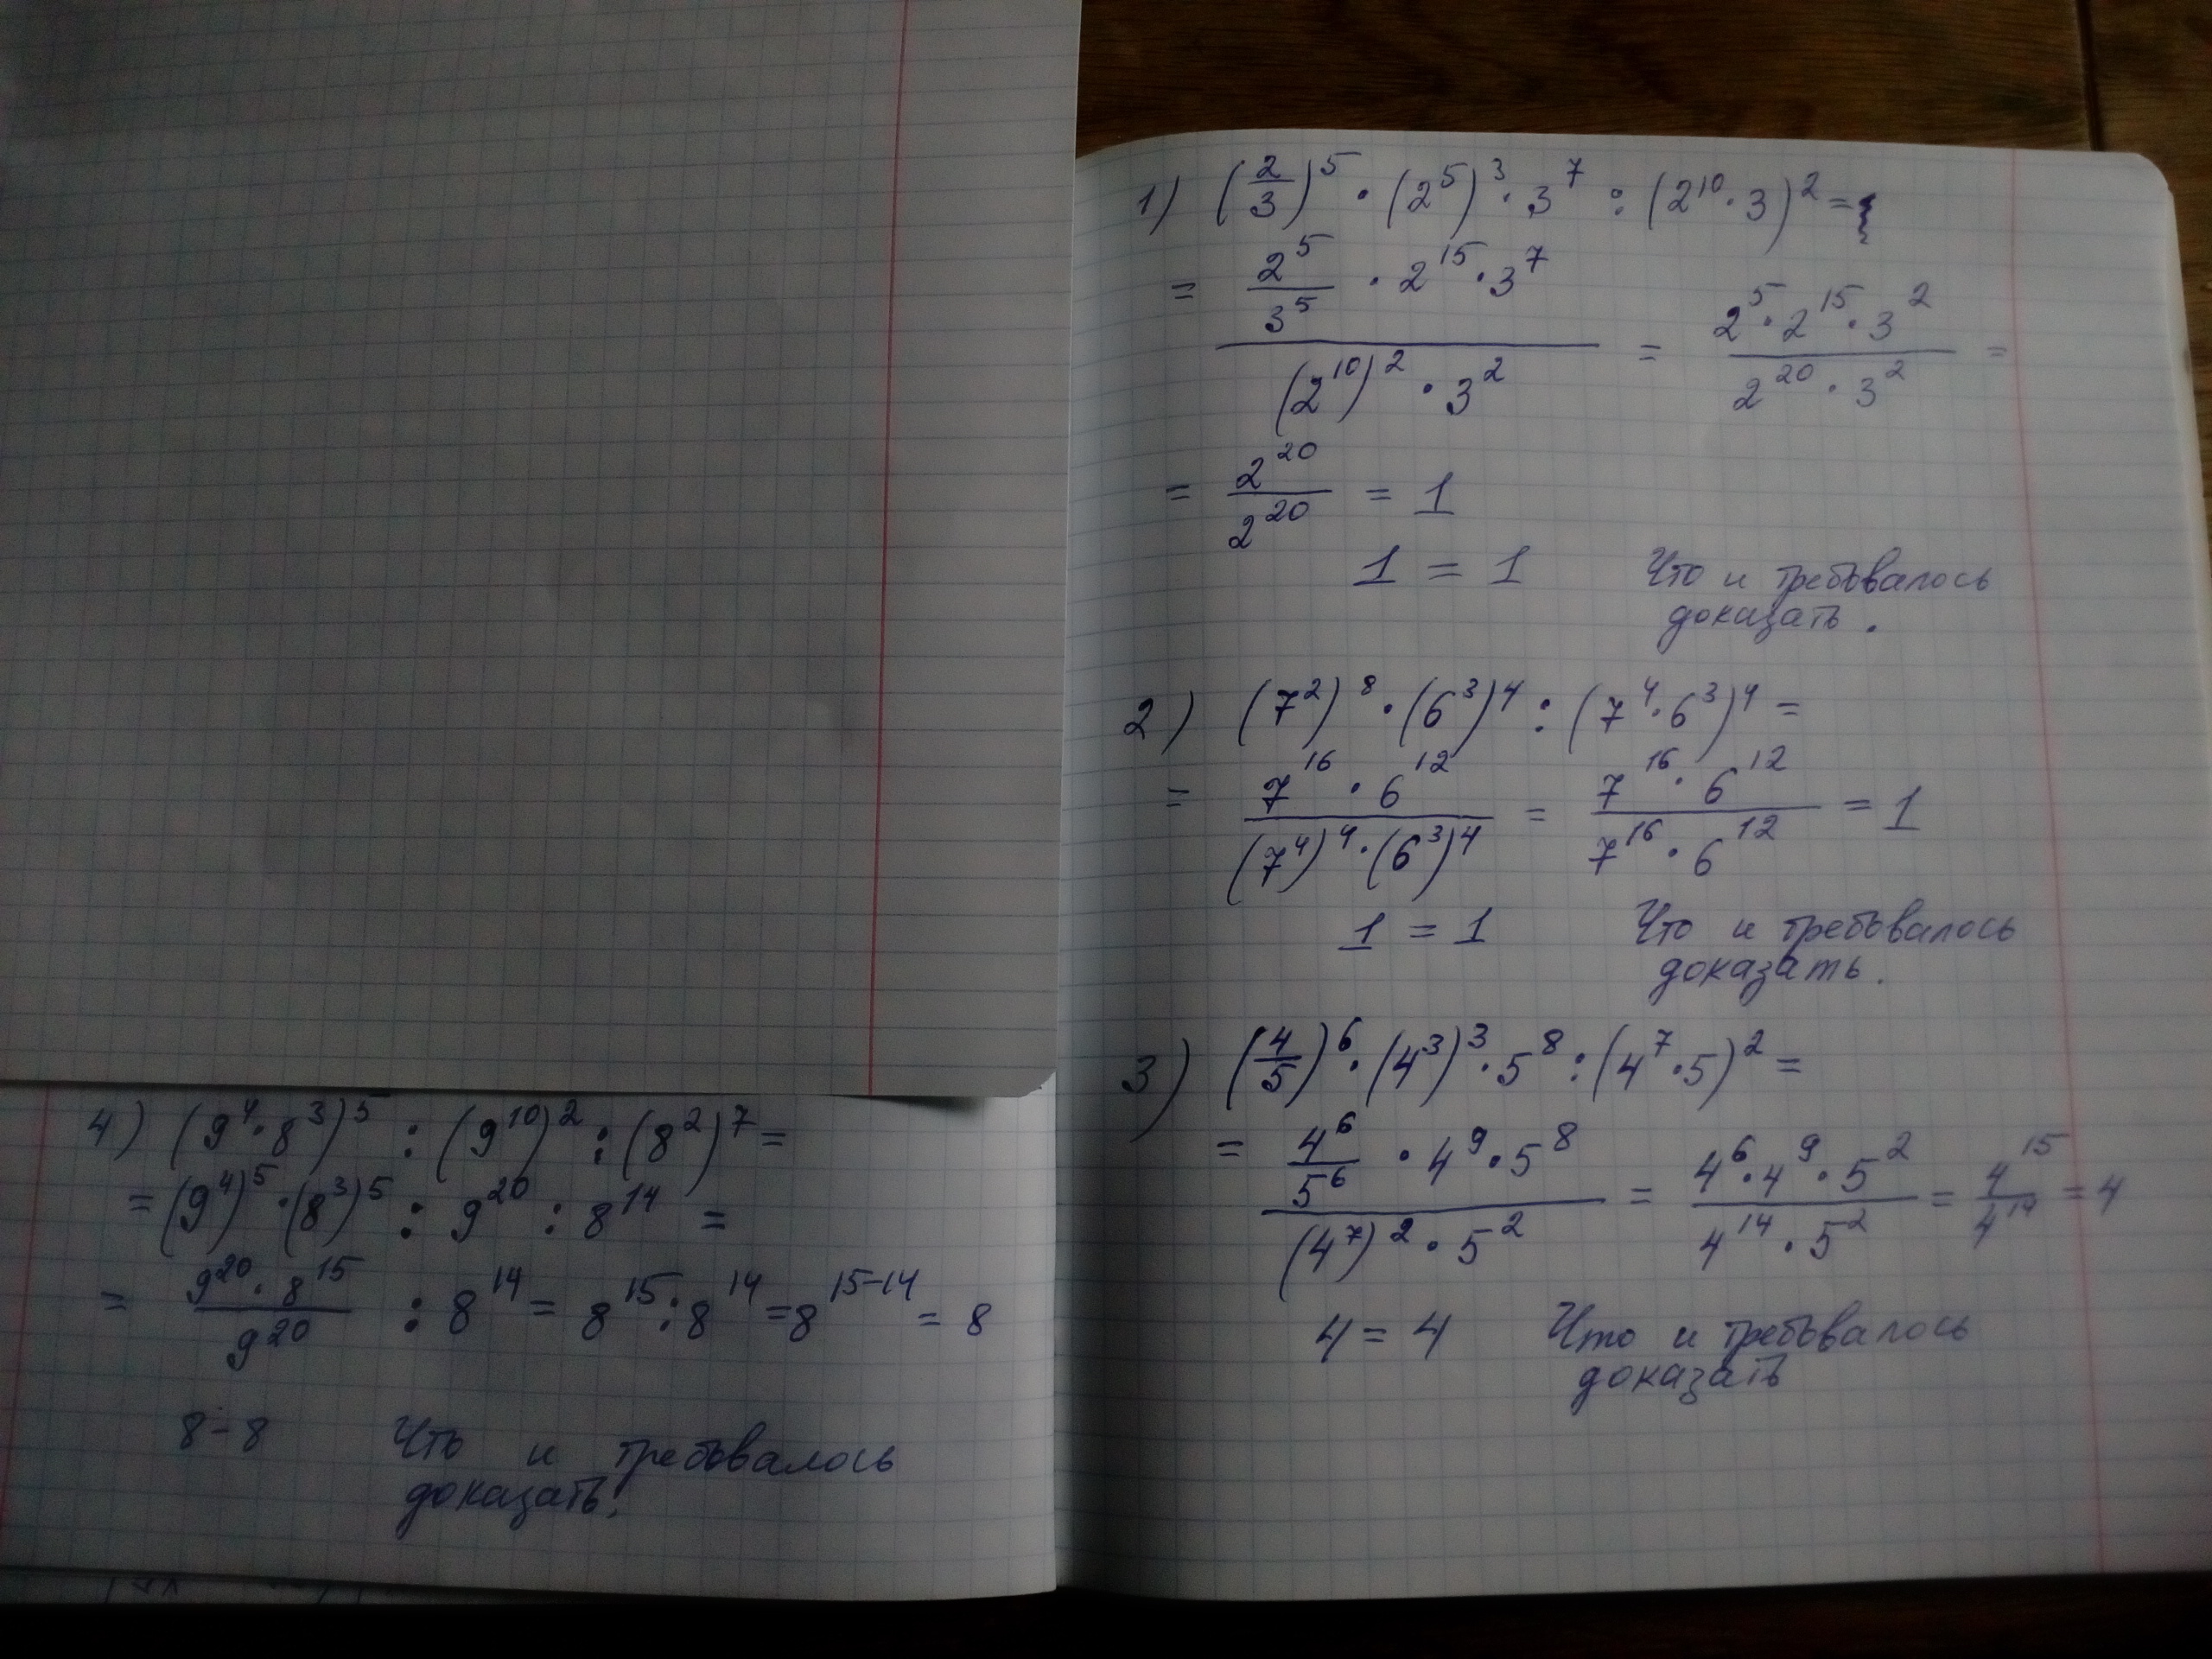 1) (2/3)^5 · (2^5)^3 · 3^7 : (2^10 · 3)^2 =
= (2^5/3^5 · 2^15 · 3^7)/((2^10)^2 · 3^2) = (2^5 · 2^15 · 3^2)/(2^20 · 3^2) =
= 2^20/2^20 = 1
1 = 1 Что и требовалось
доказать.
2) (7^2)^8 · (6^3)^4 : (7^4 · 6^3)^4 =
= (7^16 · 6^12)/((7^4)^4 · (6^3)^4) = (7^16 · 6^12)/(7^16 · 6^12) = 1
1 = 1 Что и требовалось
доказать.
3) (4/5)^6 · (4^3)^3 · 5^8 : (4^7 · 5)^2 =
= (4^6/5^6 · 4^9 · 5^8)/((4^7)^2 · 5^2) = (4^6 · 4^9 · 5^2)/(4^14 · 5^2) = 4^15/4^14 = 4
4 = 4 Что и требовалось
доказать
4) (9^4 · 8^3)^5 : (9^10)^2 : (8^2)^7 =
= (9^4)^5 · (8^3)^5 : 9^20 : 8^14 =
= (9^20 · 8^15)/9^20 : 8^14 = 8^15 : 8^14 = 8^15-14 = 8
8 = 8 Что и требовалось
доказать.